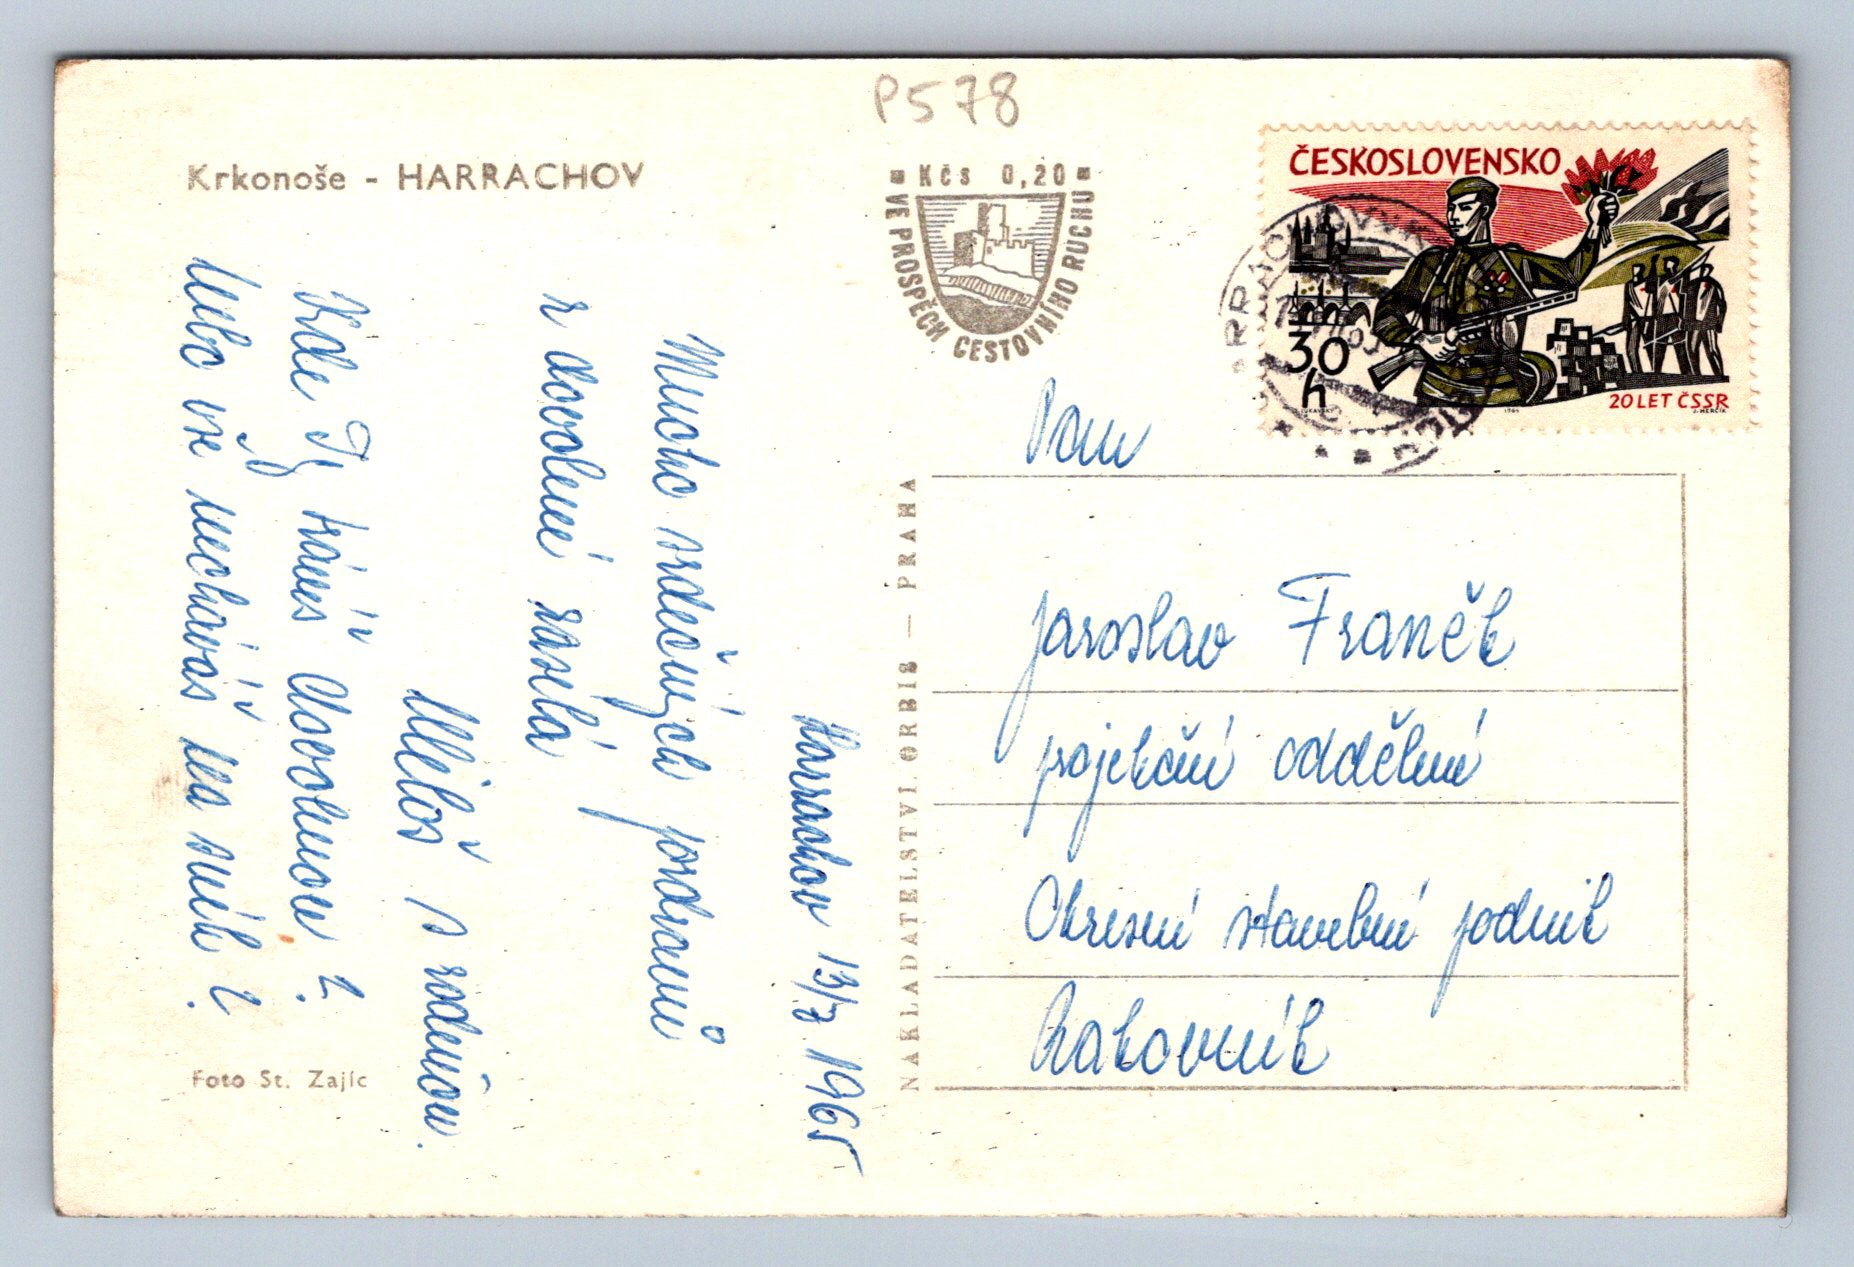 P578
Krkonoše - HARRACHOV
Kčs 0,20
VE PROSPĚCH CESTOVNÍHO RUCHU
ČESKOSLOVENSKO
30
h
20 LET ČSSR
1965
J. HERČÍK
Harrachov 13/7 1965
Mnoho srdečných pozdravů
z dovolené zasílá
Miloš s rodinou.
Kde Ty trávíš dovolenou?
Nebo vše necháváš na sníh?
Foto St. Zajíc
NAKLADATELSTVÍ ORBIS — PRAHA
Pan
Jaroslav Franěk
projekční oddělení
Okresní stavební podnik
Rakovník